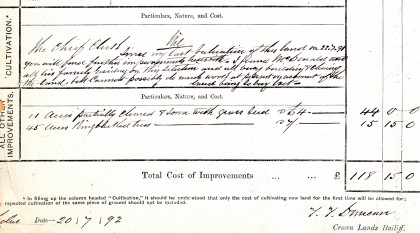 Particulars, Nature, and Cost.
CULTIVATION.
The Chief Clerk Nil
my last valuation of this land on
you will find further improvements
all his family residing on the selection and all busy building & clearing
the land but cannot possibly do much work at present on account of the
land being so
Particulars, Nature, and Cost.
ALL OTHER IMPROVEMENTS.
11 Acres partially cleared & sown with grass seed @ £4 — 44 0 0
45 Acres Ringbarked @ 7/- 15 15 0
Total Cost of Improvements ... ... £ 118 15 0
* In filling up the column headed "Cultivation," it should be understood that only the cost of cultivating new land for the first time is to be given;
repeated cultivation of the same place of ground should not be included.
Date 20/7/92
Crown Lands Bailiff.